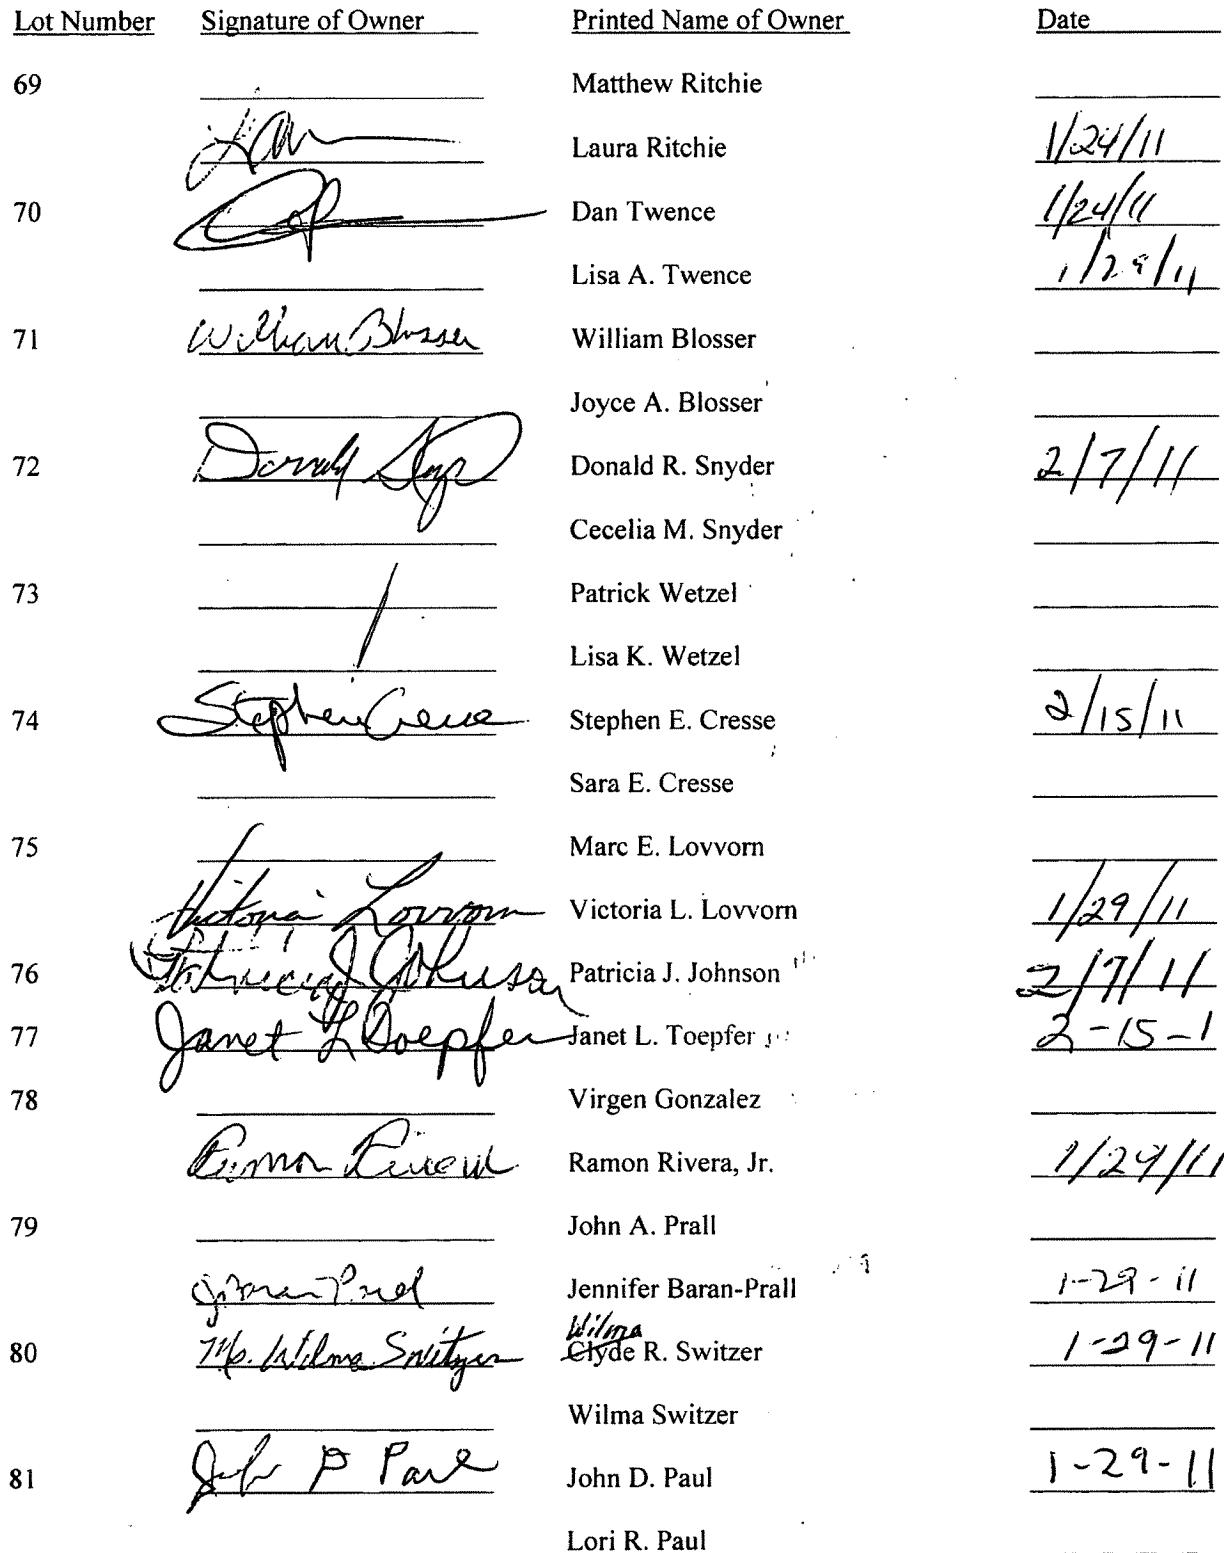 Lot Number Signature of Owner Printed Name of Owner Date
69 Matthew Ritchie
Laura Ritchie 1/24/11
70 Dan Twence 1/24/11
Lisa A. Twence 1/29/11
71 William Blosser William Blosser
Joyce A. Blosser
72 Donald Snyder Donald R. Snyder 2/7/11
Cecelia M. Snyder
73 Patrick Wetzel
Lisa K. Wetzel
74 Stephen Cresse Stephen E. Cresse 2/15/11
Sara E. Cresse
75 Marc E. Lovvorn
Victoria Lovvorn Victoria L. Lovvorn 1/29/11
76 Patricia J Johnson Patricia J. Johnson 2/7/11
77 Janet L Toepfer Janet L. Toepfer 2-15-1
78 Virgen Gonzalez
Ramon Rivera Ramon Rivera, Jr. 1/29/11
79 John A. Prall
J Baran-Prall Jennifer Baran-Prall 1-29-11
Wilma
80 Wilma Switzer Clyde R. Switzer 1-29-11
Wilma Switzer
81 John D Paul John D. Paul 1-29-11
Lori R. Paul